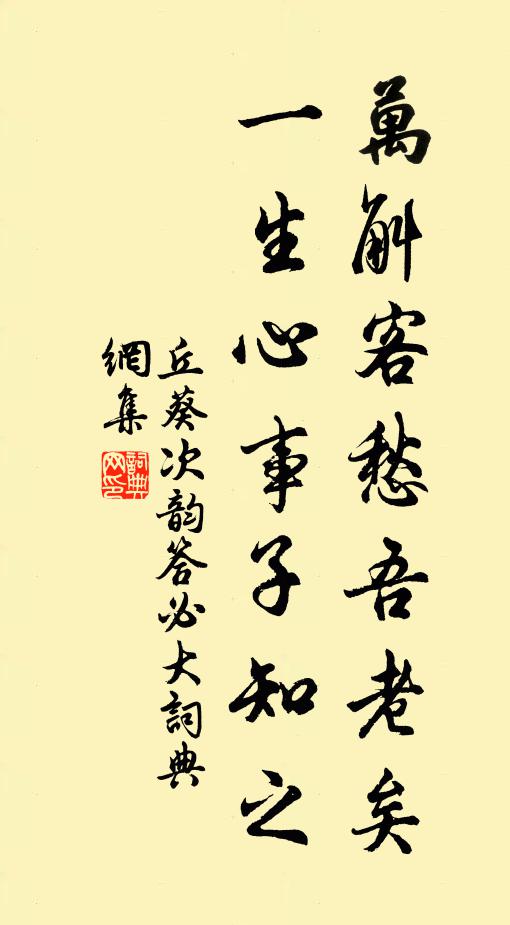 萬斛客愁吾老矣
一生心事子知之
丘葵次韵答必大詞典
網集
詞典网印